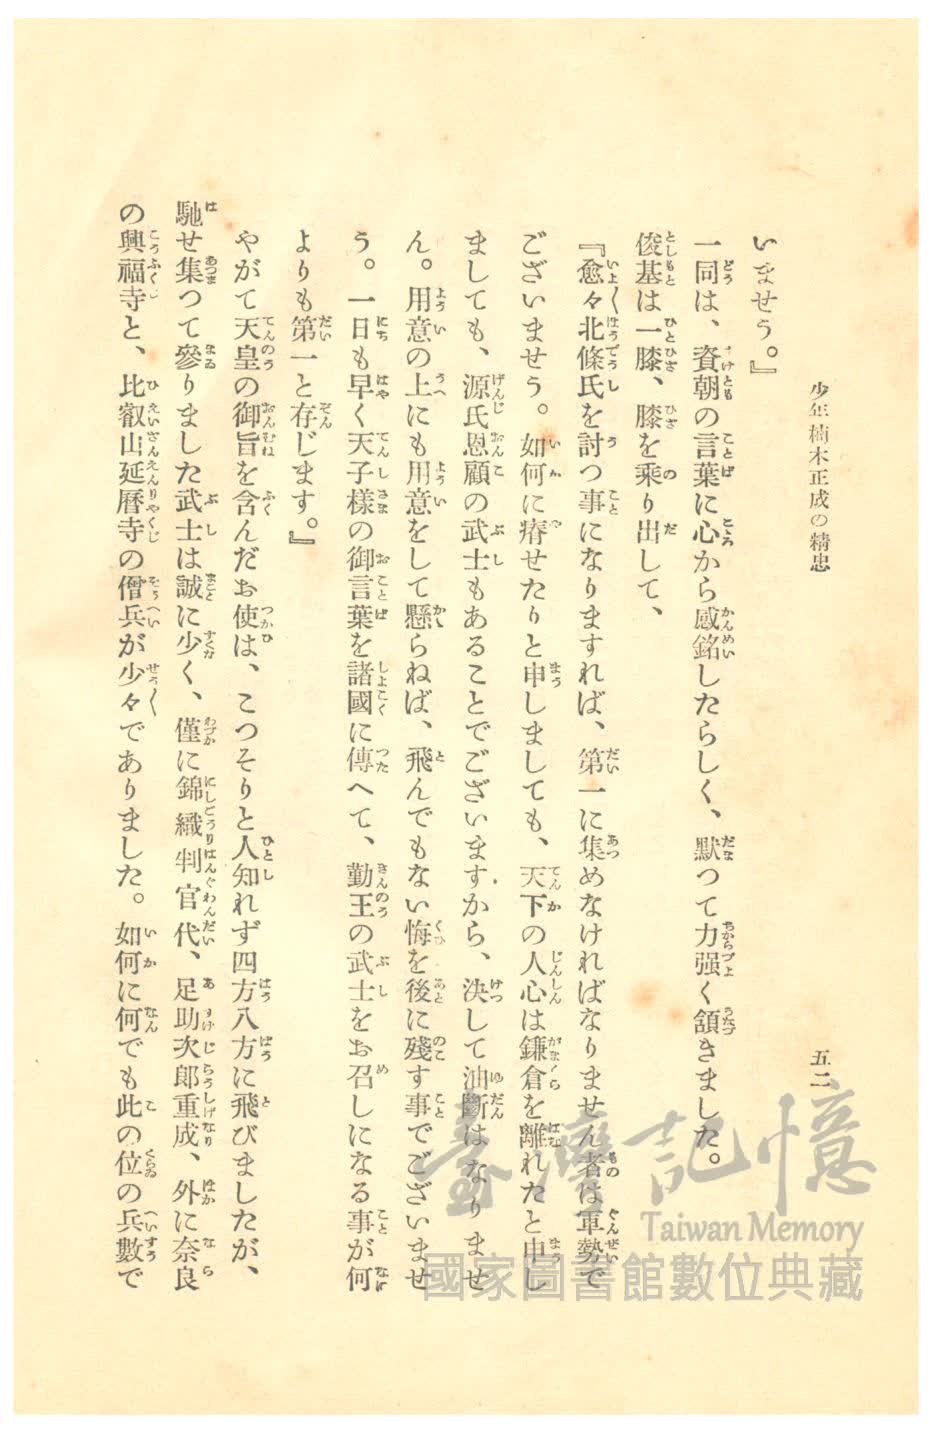 少年楠木正成の精忠
五二
いませう。』
一同は、資朝の言葉に心から感銘したらしく、默つて力强く頷きました。
俊基は一膝、膝を乘り出して、
『愈々〱北條氏を討つ事になりますれば、第一に集めなければなりません者は軍勢で
ございませう。如何に瘠せたりと申しましても、天下の人心は鎌倉を離れたと申し
ましても、源氏恩顧の武士もあることでございますから、決して油斷はなりませ
ん。用意の上にも用意をして懸らねば、飛んでもない悔を後に殘す事でございませ
う。一日も早く天子樣の御言葉を諸國に傳へて、勤王の武士をお召しになる事が何
よりも第一と存じます。』
やがて天皇の御旨を含んだお使は、こつそりと人知れず四方八方に飛びましたが、
馳せ集つて參りました武士は誠に少く、僅に錦織判官代、足助次郎重成、外に奈良
の興福寺と、比叡山延曆寺の僧兵が少々でありました。如何に何でも此の位の兵數で
臺灣記憶
Taiwan Memory
國家圖書館數位典藏